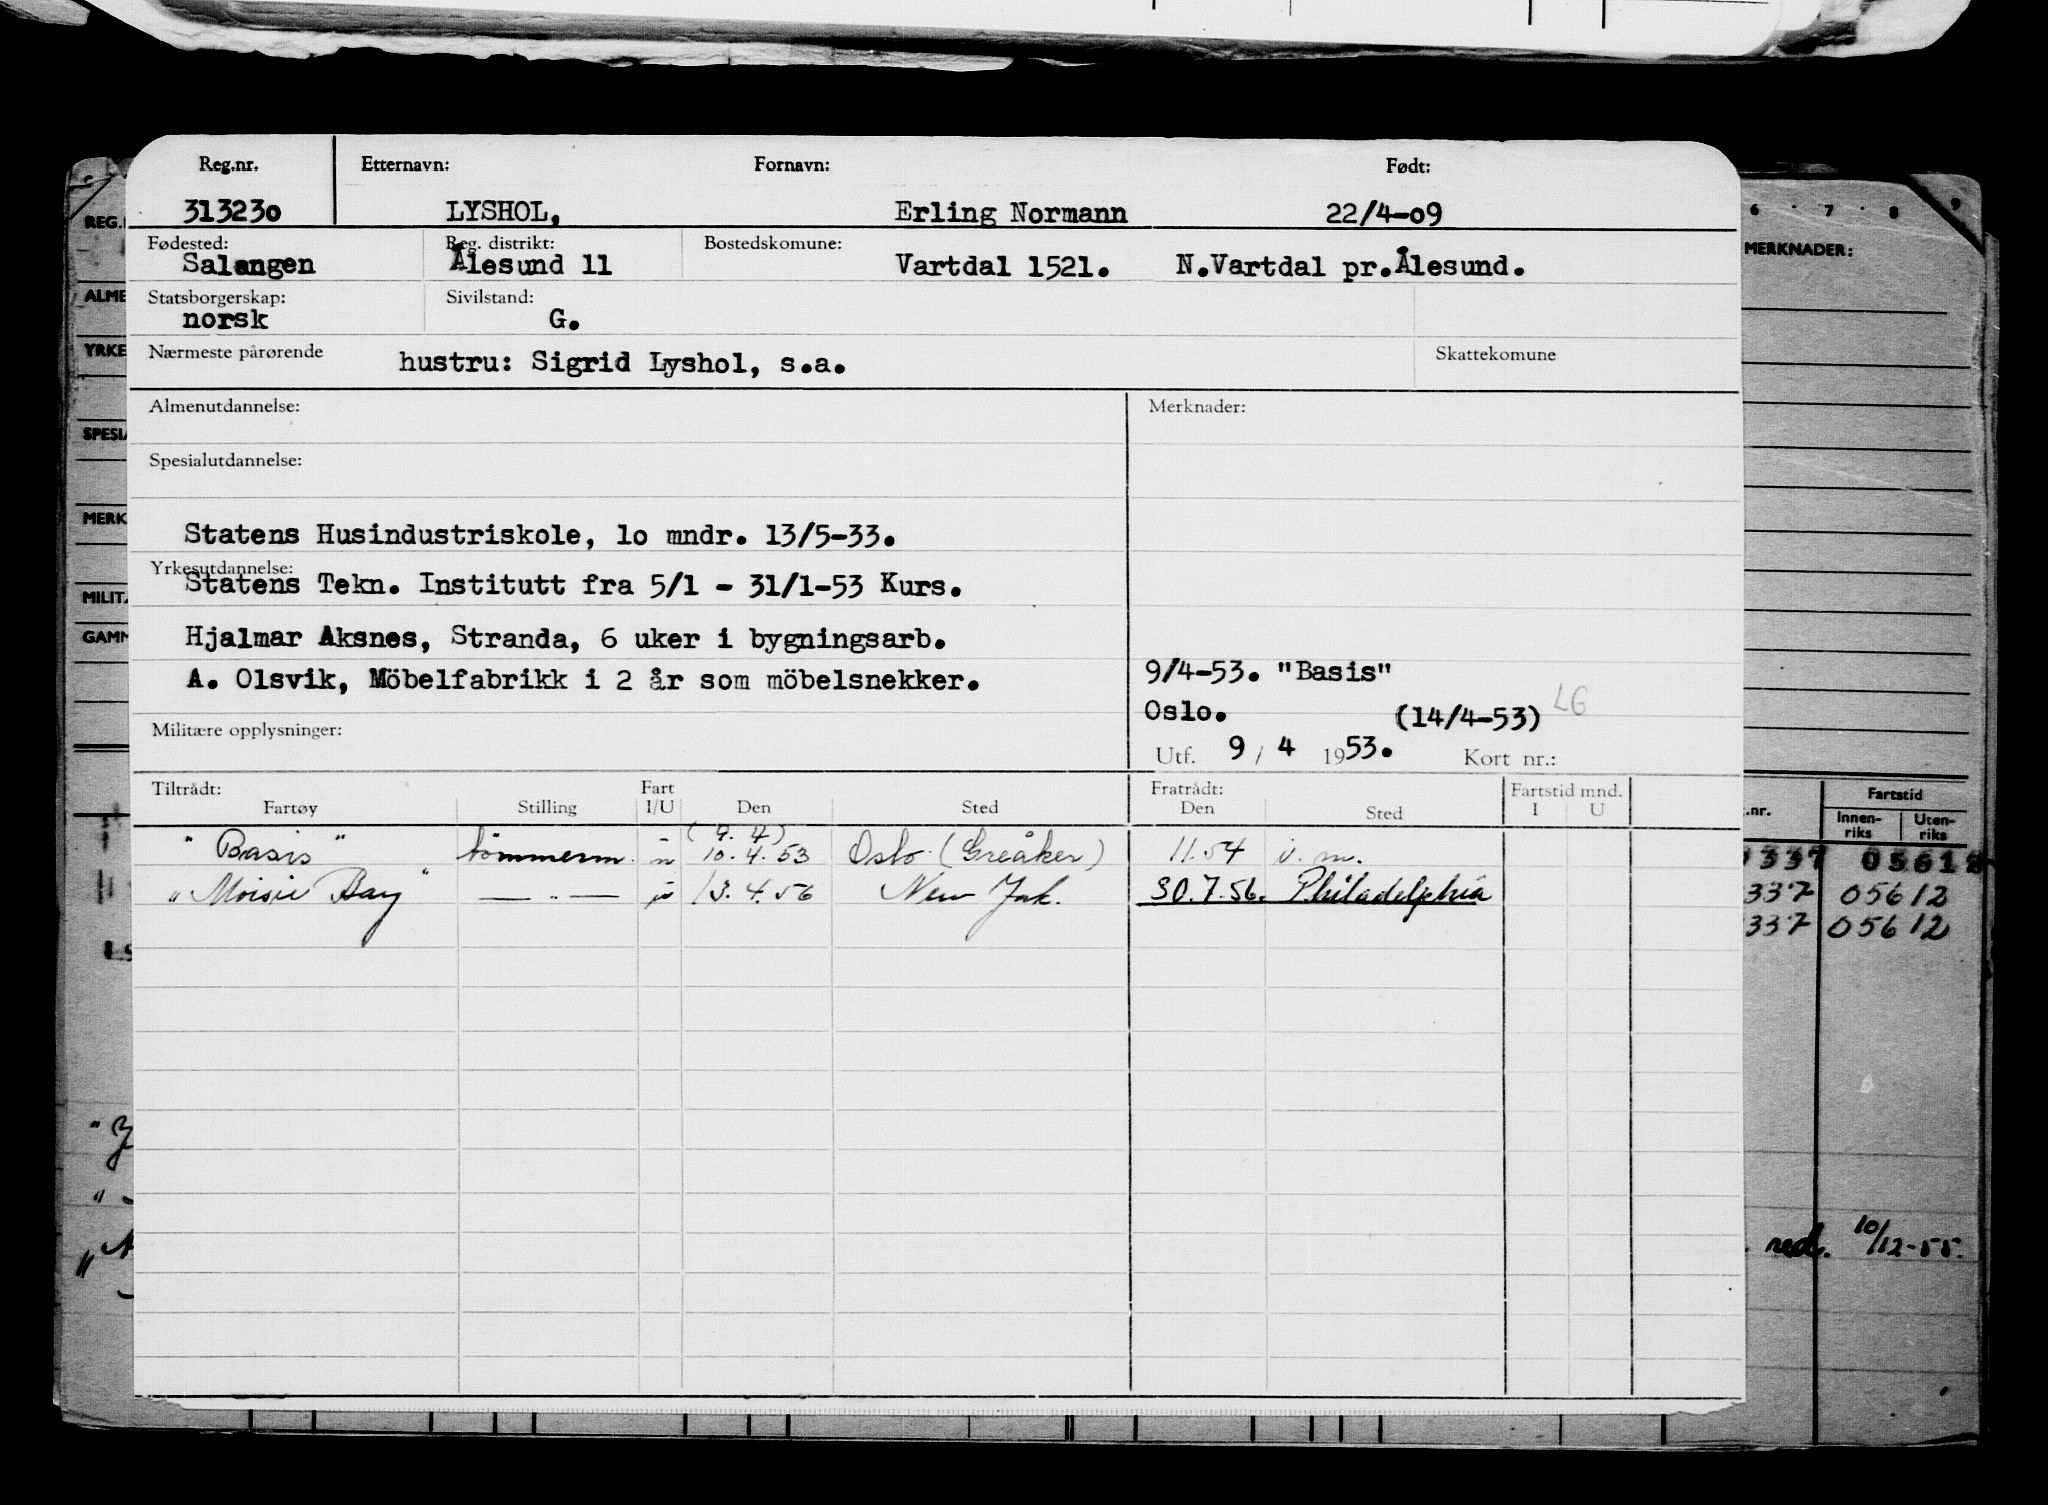 Reg.nr. Etternavn: Fornavn: Født:
313230 LYSHOL, Erling Normann 22/4-09
Fødested: Reg. distrikt: Bostedskomune:
Salangen Ålesund 11 Vartdal 1521. N.Vartdal pr.Ålesund.
Statsborgerskap: Sivilstand:
norsk G.
Nærmeste pårørende hustru: Sigrid Lyshol, s.a. Skattekomune
Almenutdannelse: Merknader:
Spesialutdannelse:
Statens Husindustriskole, 10 mndr. 13/5-33.
Yrkesutdannelse:
Statens Tekn. Institutt fra 5/1 - 31/1-53 Kurs.
Hjalmar Aksnes, Stranda, 6 uker i bygningsarb.
A. Olsvik, Möbelfabrikk i 2 år som möbelsnekker.
9/4-53. "Basis"
Oslo. (14/4-53) LG
Militære opplysninger:
Utf. 9 / 4 1953. Kort nr.:
Tiltrådt: Fart Fratrådt: Fartstid mnd.
Fartøy Stilling I/U Den Sted Den Sted I U
(9. 4)
"Basis" tømmerm. u 10.4.53 Oslo (Greåker) 11.54 i. m.
"Moisie Bay" — " — u 13.4.56 New York. 30.7.56. Philadelphia
REG.
ALME
YRKE
SPESI
MERK
MILIT
GAMM
6 7 8 9
MERKNADER:
.nr. Fartstid
Innen-riks Uten-riks
337 05612
337 05612
337 05612
red. 10/12-55.